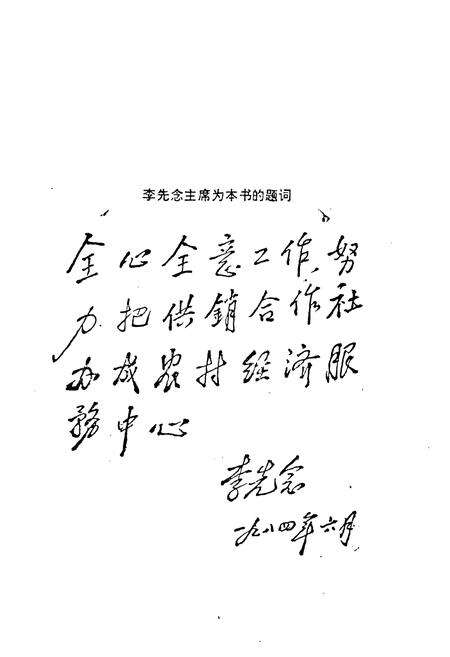 李先念主席为本书的题词
全心全意工作，努
力把供銷合作社
办成农村经济服
務中心
李先念
一九八四年六月